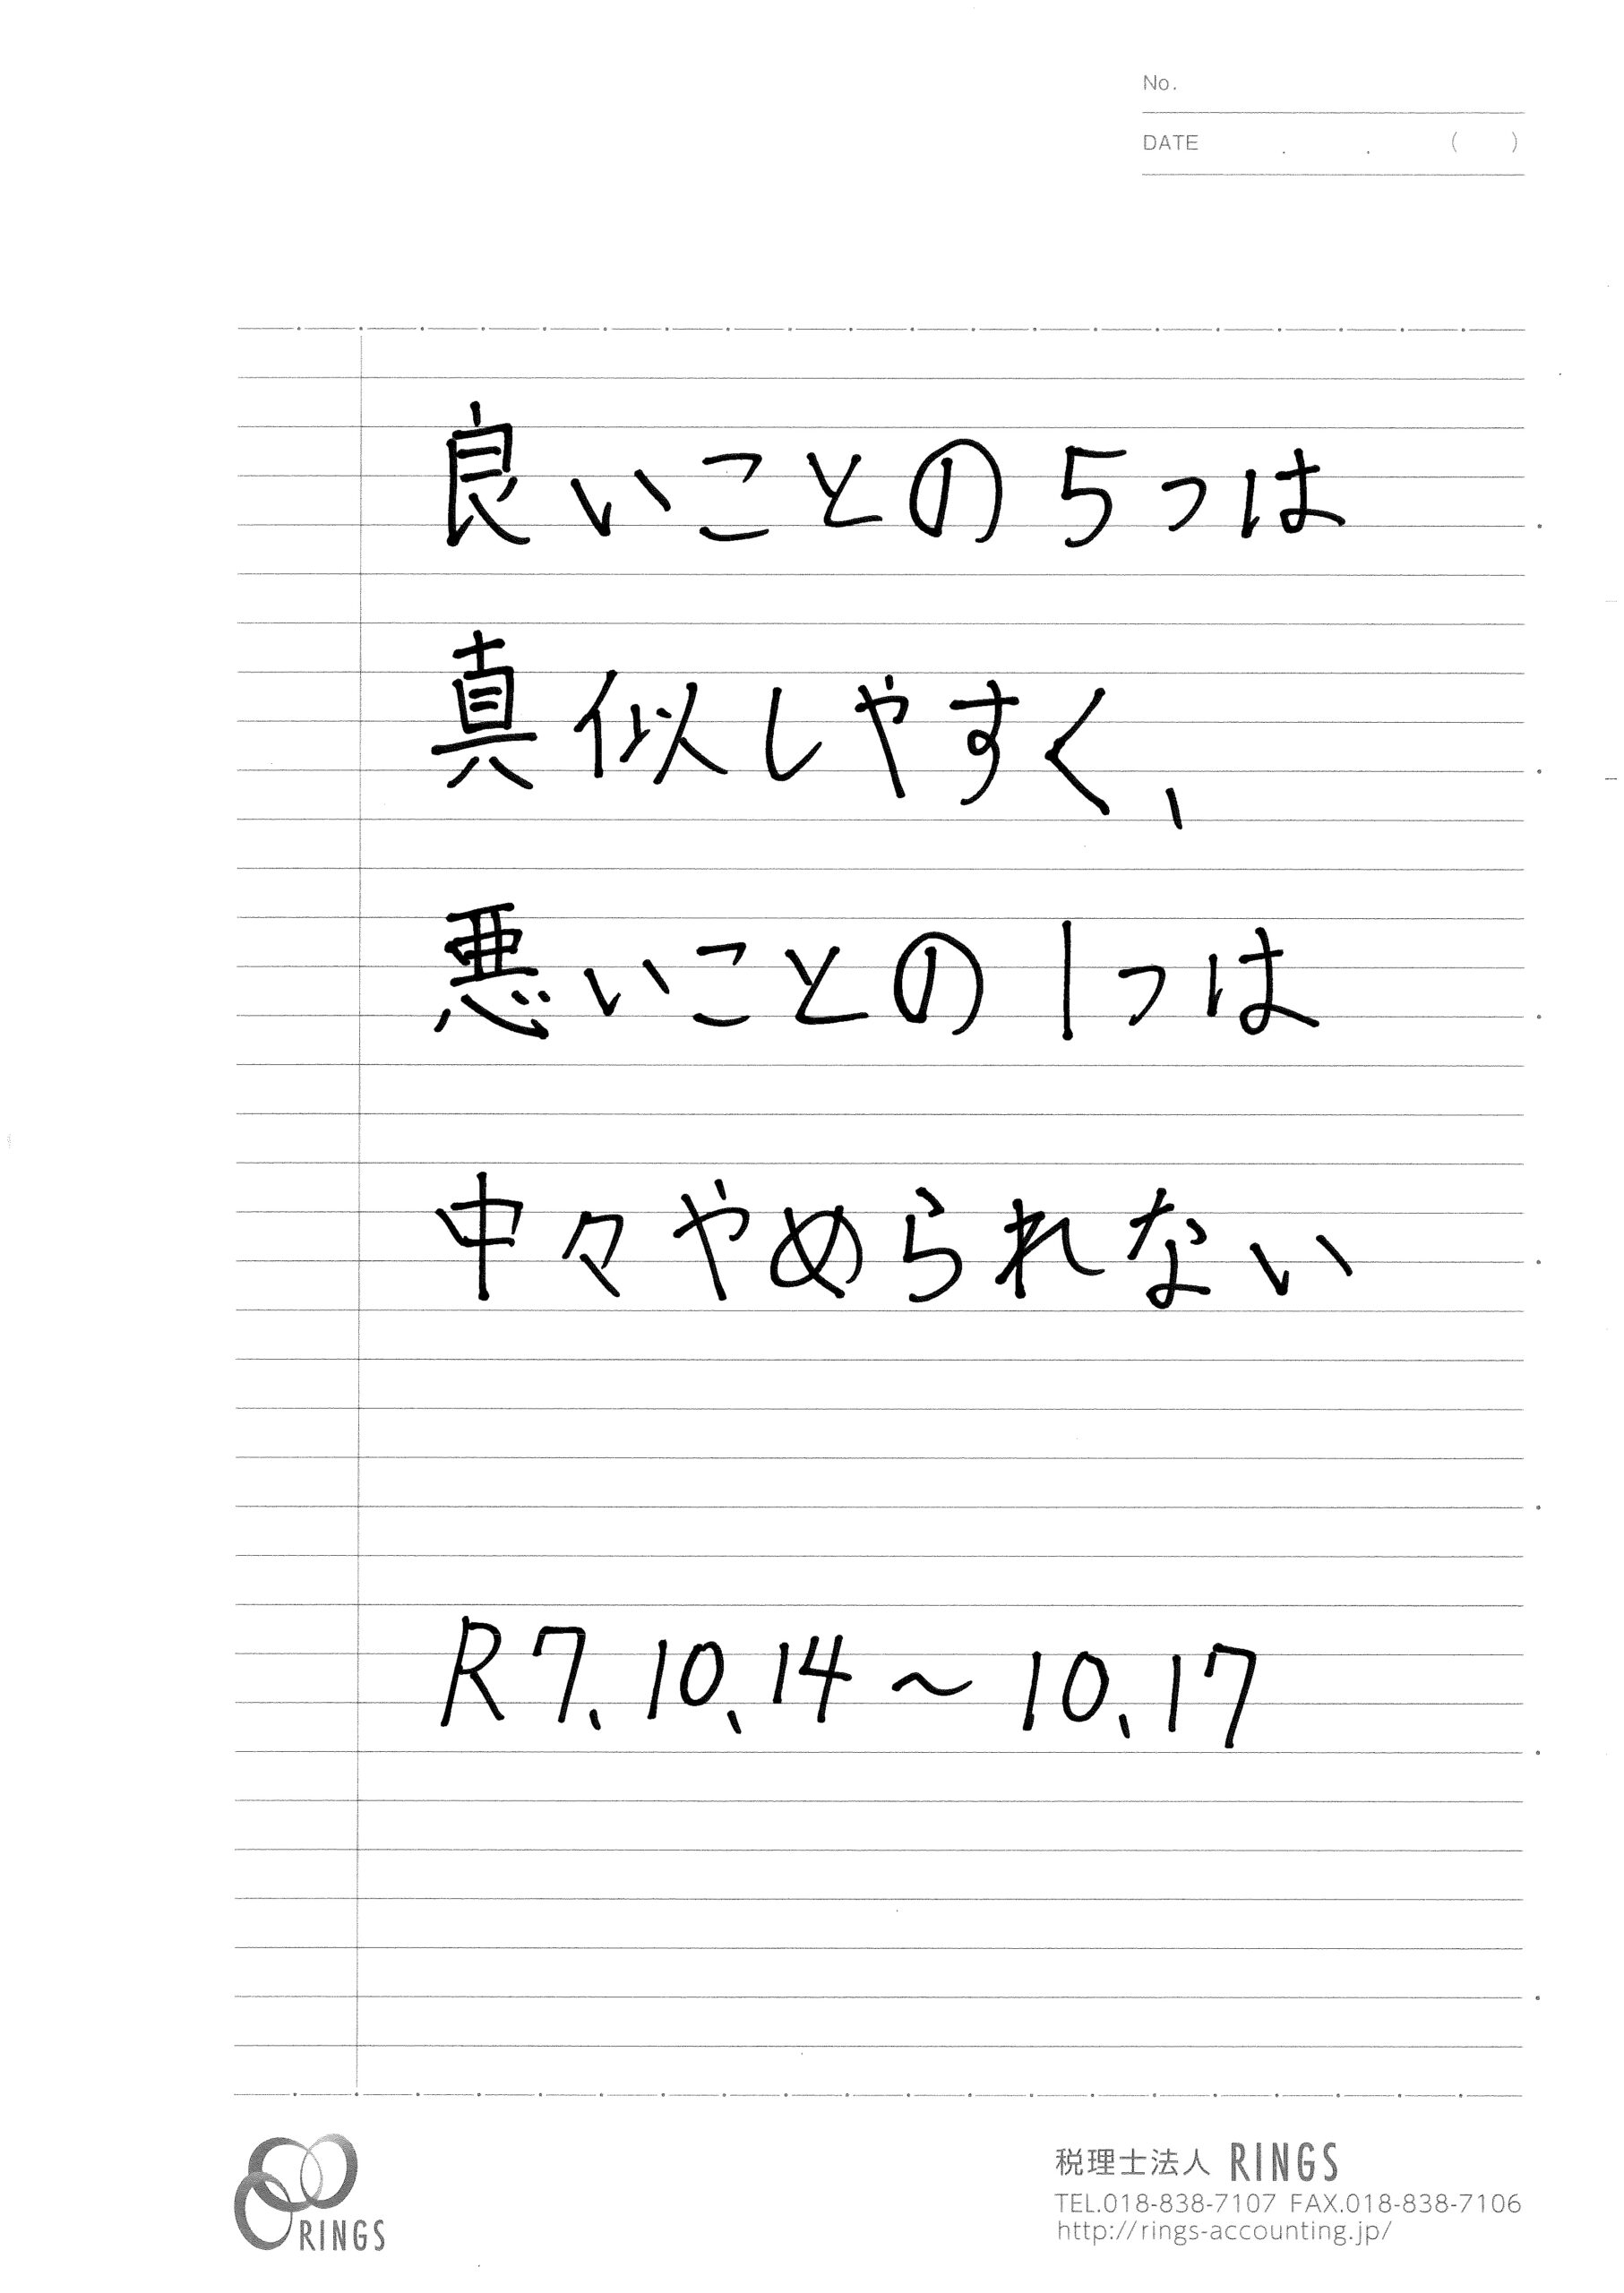 No.
DATE . . ( )
良いことの5つは
真似しやすく、
悪いことの1つは
中々やめられない
R7.10.14～10.17
RINGS
税理士法人 RINGS
TEL.018-838-7107 FAX.018-838-7106
http://rings-accounting.jp/